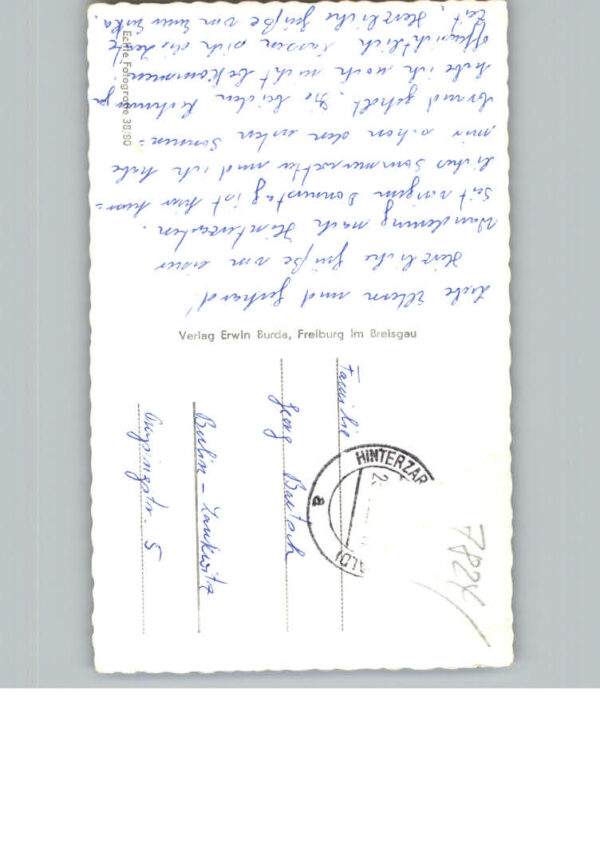 Liebe Eltern und Gerhard!
Herzliche Grüße von einer
Wanderung nach Hinterzarten.
Seit vorigem Donnerstag ist hier herr=
liches Sommerwetter und ich habe
mir schon den ersten Sonnen=
brand geholt. Die beiden
habe ich noch nicht bekommen.
Offensichtlich lassen sich die Leute
Zeit. Herzliche Grüße von Eurer Erika.
Echte Fotografie 38/60
Verlag Erwin Burda, Freiburg im Breisgau
Familie
Georg Bartsch
Berlin - Lankwitz
5
HINTERZAR
a